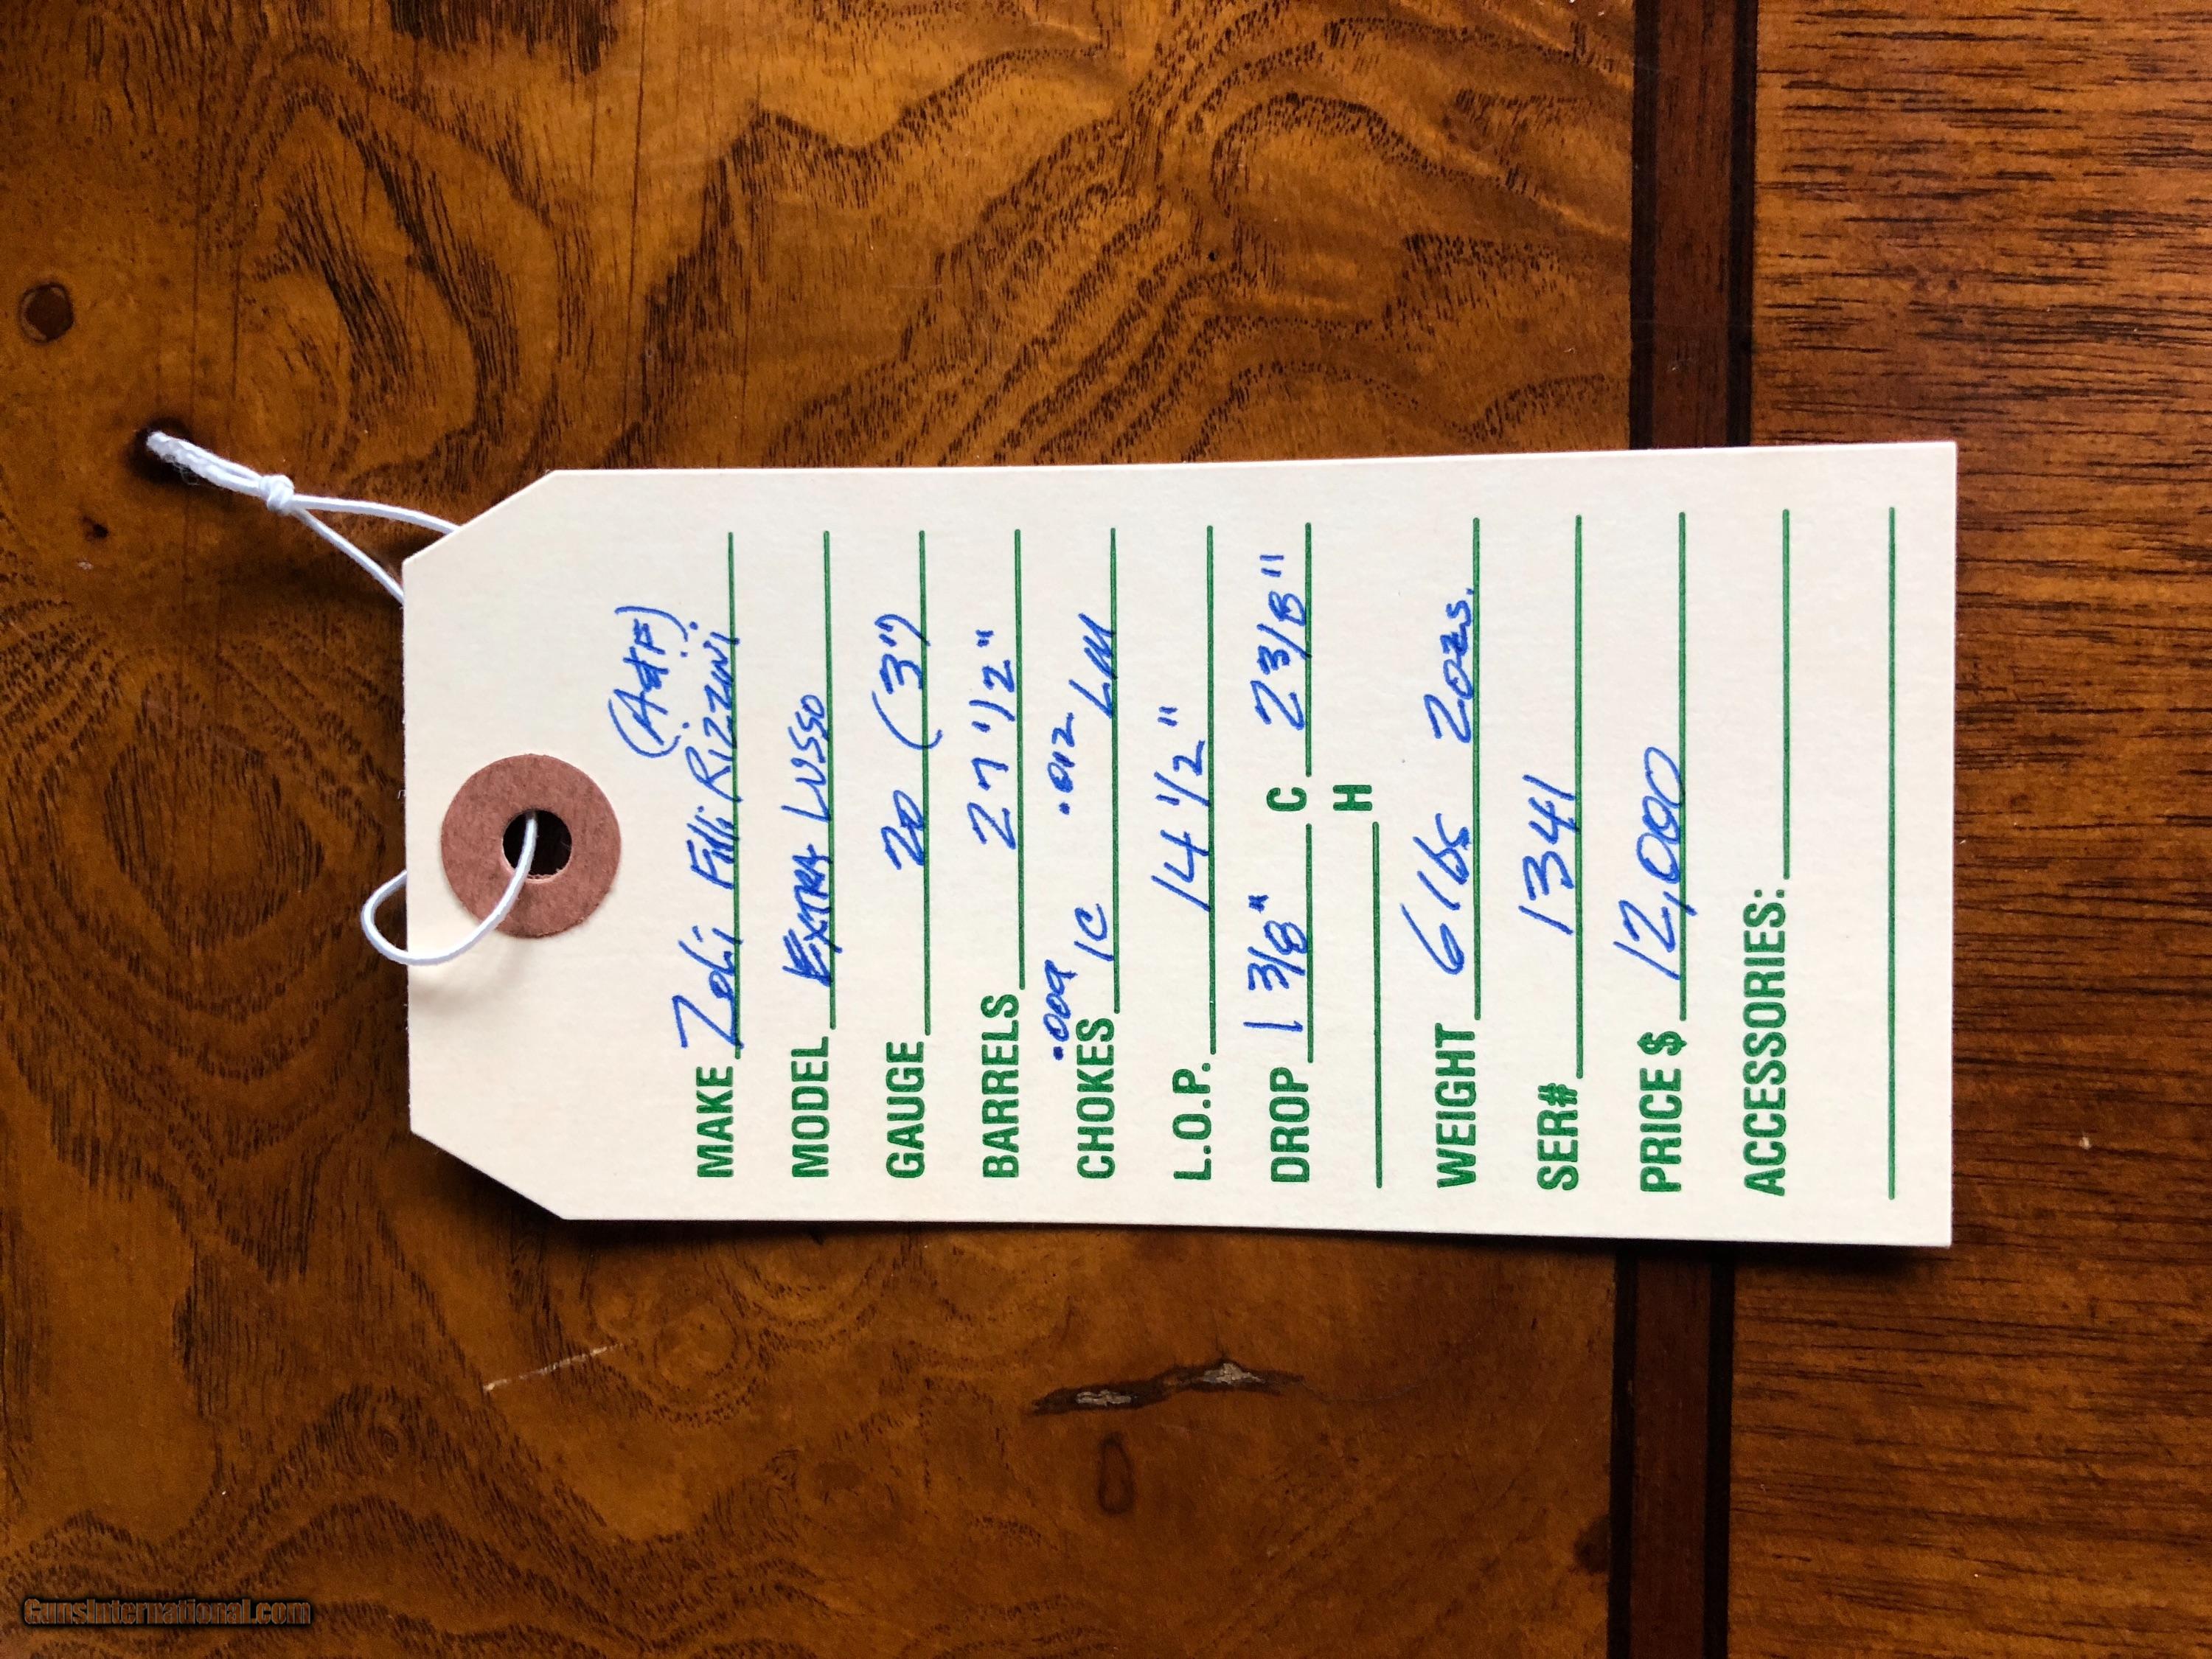 (A&F)
MAKE Zoli F.lli Rizzini
MODEL EXTRA LUSSO
GAUGE 20 (3")
BARRELS 27 1/2"
.009 .012
CHOKES IC LM
L.O.P. 14 1/2"
DROP 1 3/8" C 2 3/8"
H
WEIGHT 6 lbs 2 ozs.
SER# 1341
PRICE $ 12,000
ACCESSORIES:
GunsInternational.com